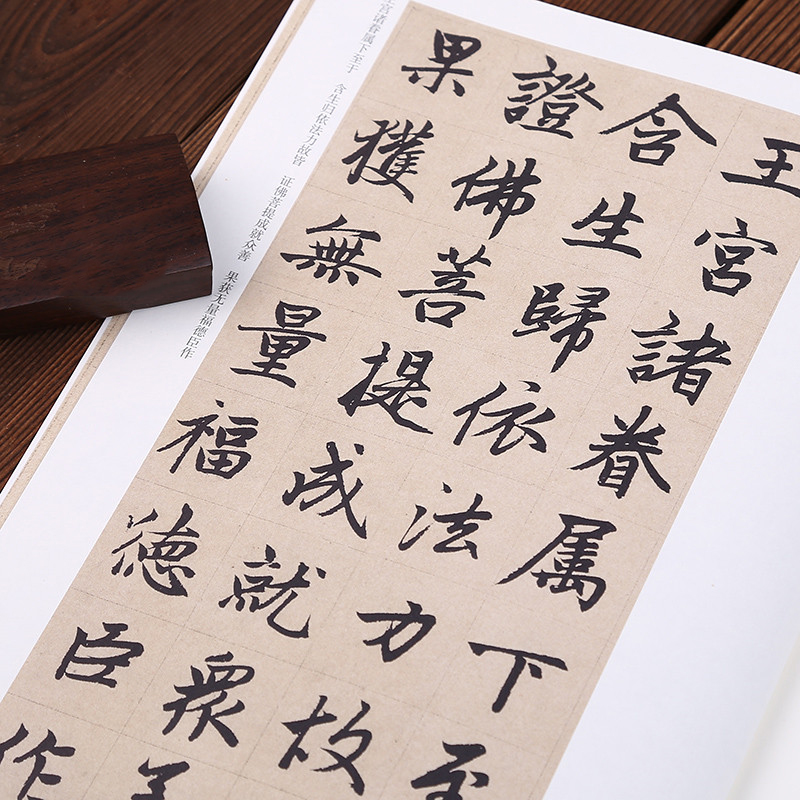 王宮諸眷属下至
含生歸依法力故
證佛菩提成就衆善
果獲無量福德臣作
宫诸眷属下至于 含生归依法力故皆 证佛菩提成就众善 果获无量福德臣作